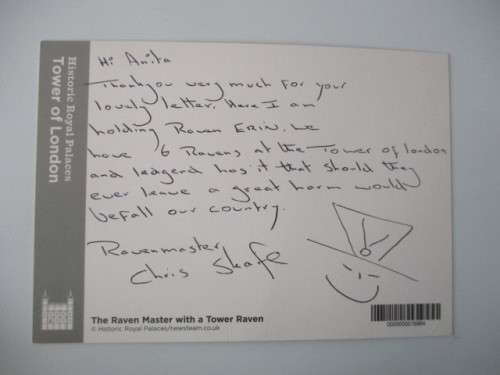 Hi Anita
Thankyou very much for your
lovely letter. Here I am
holding Raven ERIN. We
have 6 Ravens at the Tower of london
and ledgend has it that should they
ever leave a great harm would
befall our country.
Ravenmaster
Chris Skaife
The Raven Master with a Tower Raven
© Historic Royal Palaces/newsteam.co.uk
Historic Royal Palaces
Tower of London